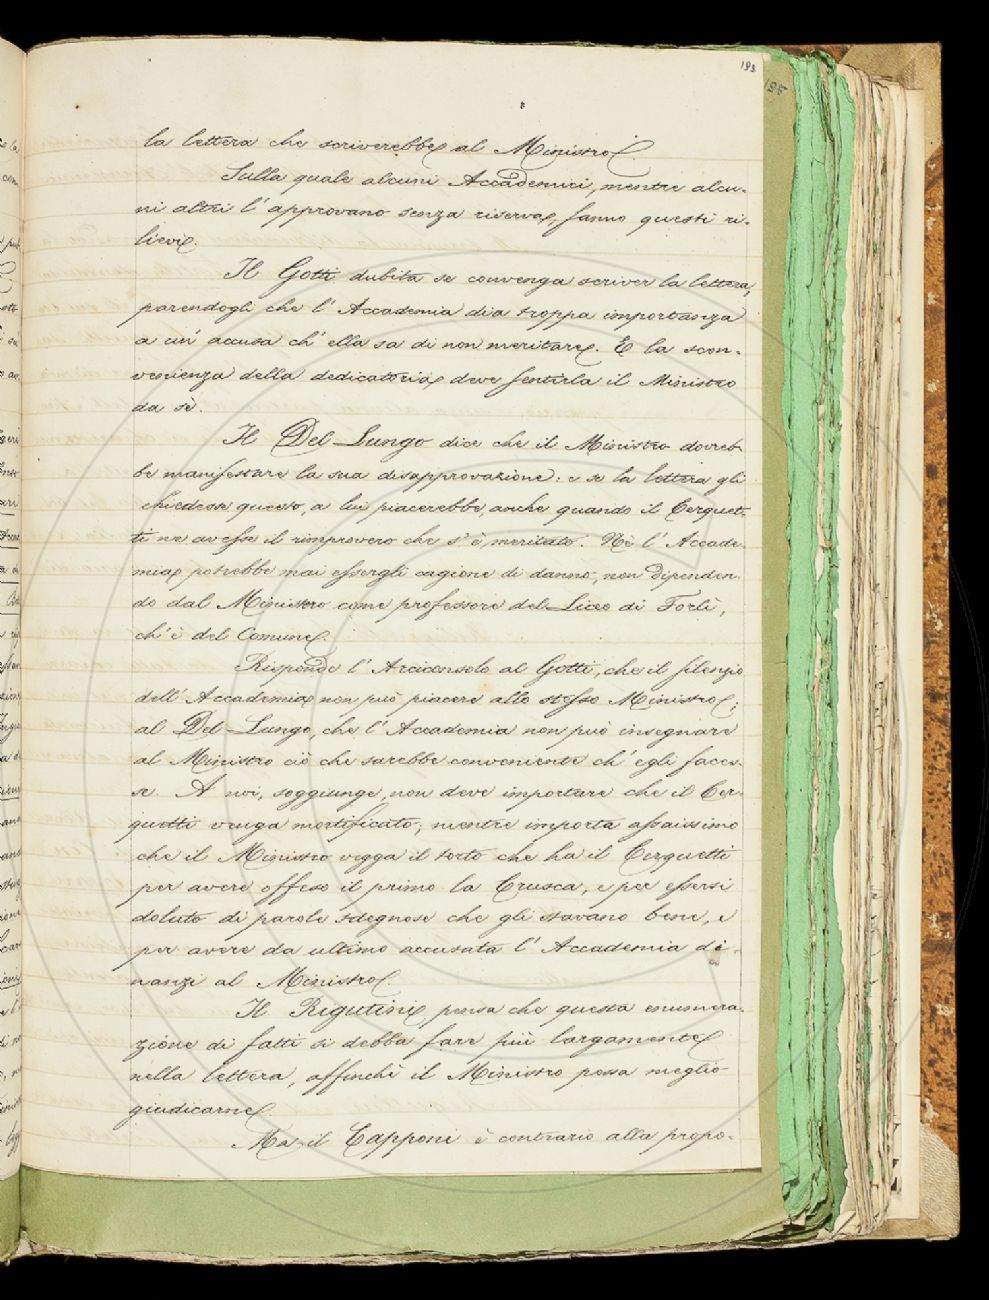 193
195
la lettera che scriverebbe al Ministro.
Sulla quale alcuni Accademici, mentre alcu-
ni altri l'approvano senza riserva, fanno questi ri-
lievi.
Il Gotti dubita se convenga scriver la lettera,
parendogli che l'Accademia dia troppa importanza
a un'accusa ch'ella sa di non meritare. E la scon-
venienza della dedicatoria deve sentirla il Ministro
da sè.
Il Del Lungo dice che il Ministro dovreb-
be manifestare la sua disapprovazione: e se la lettera gli
chiedesse questo, a lui piacerebbe, anche quando il Cerquet-
ti ne avesse il rimprovero che s'è meritato. Nè l'Accade-
mia potrebbe mai essergli cagione di danno, non dipenden-
do dal Ministro come professore del Liceo di Forlì,
ch'è del Comune.
Risponde l'Arciconsolo al Gotti, che il silenzio
dell'Accademia non può piacere allo stesso Ministro;
al Del Lungo, che l'Accademia non può insegnare
al Ministro ciò che sarebbe conveniente ch'egli faces-
se. A noi, soggiunge, non deve importare che il Cer-
quetti venga mortificato; mentre importa assaissimo
che il Ministro vegga il torto che ha il Cerquetti
per avere offeso il primo la Crusca, e per essersi
doluto di parole sdegnose che gli stavano bene, e
per avere da ultimo accusata l'Accademia di-
nanzi al Ministro.
Il Rigutini, pensa che questa enumera-
zione di fatti si debba fare più largamente
nella lettera, affinchè il Ministro possa meglio
giudicarne.
Ma il Capponi è contrario alla propo-